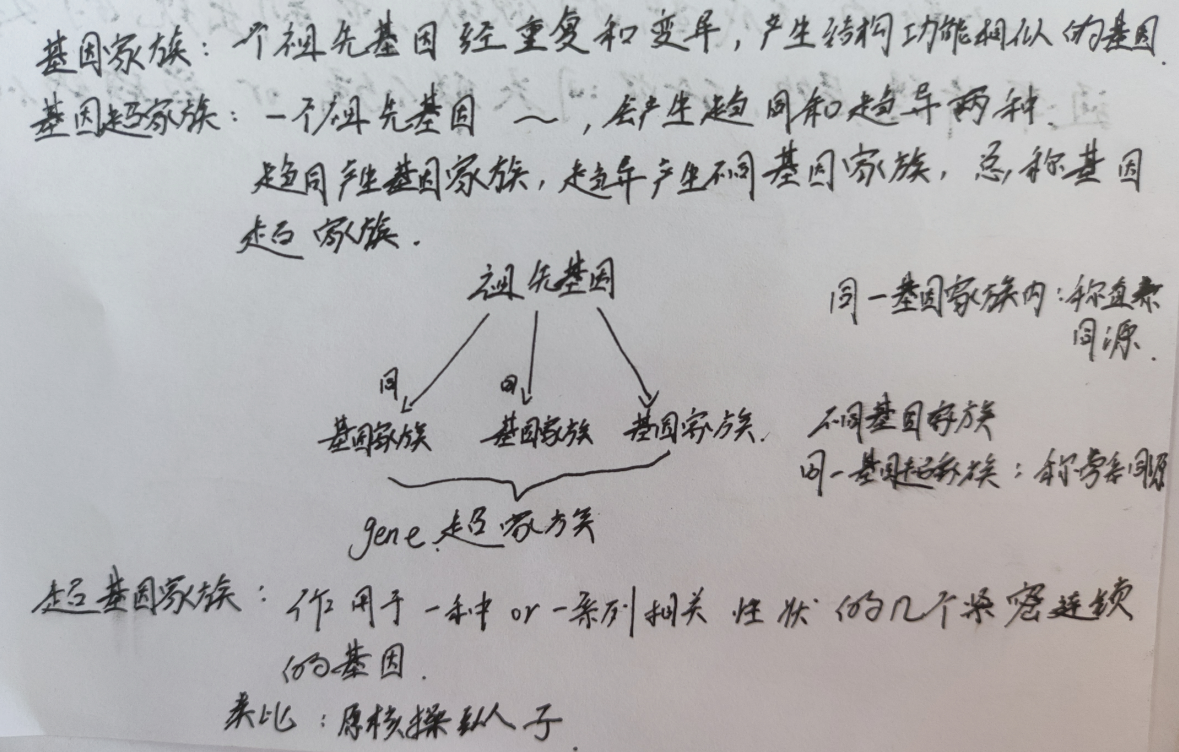 基因家族：一个祖先基因经重复和变异，产生结构功能相似的基因.
基因超家族：一个祖先基因 ～，会产生趋同和趋异两种.
趋同产生基因家族，趋异产生不同基因家族，总称基因
超家族.
祖先基因
同 同
基因家族 基因家族 基因家族.
gene 超家族
同一基因家族内：称直系
同源.
不同基因家族
同一基因超家族：称旁系同源
超基因家族：作用于一种 or 一系列相关性状的几个紧密连锁
的基因.
类比：原核操纵子.